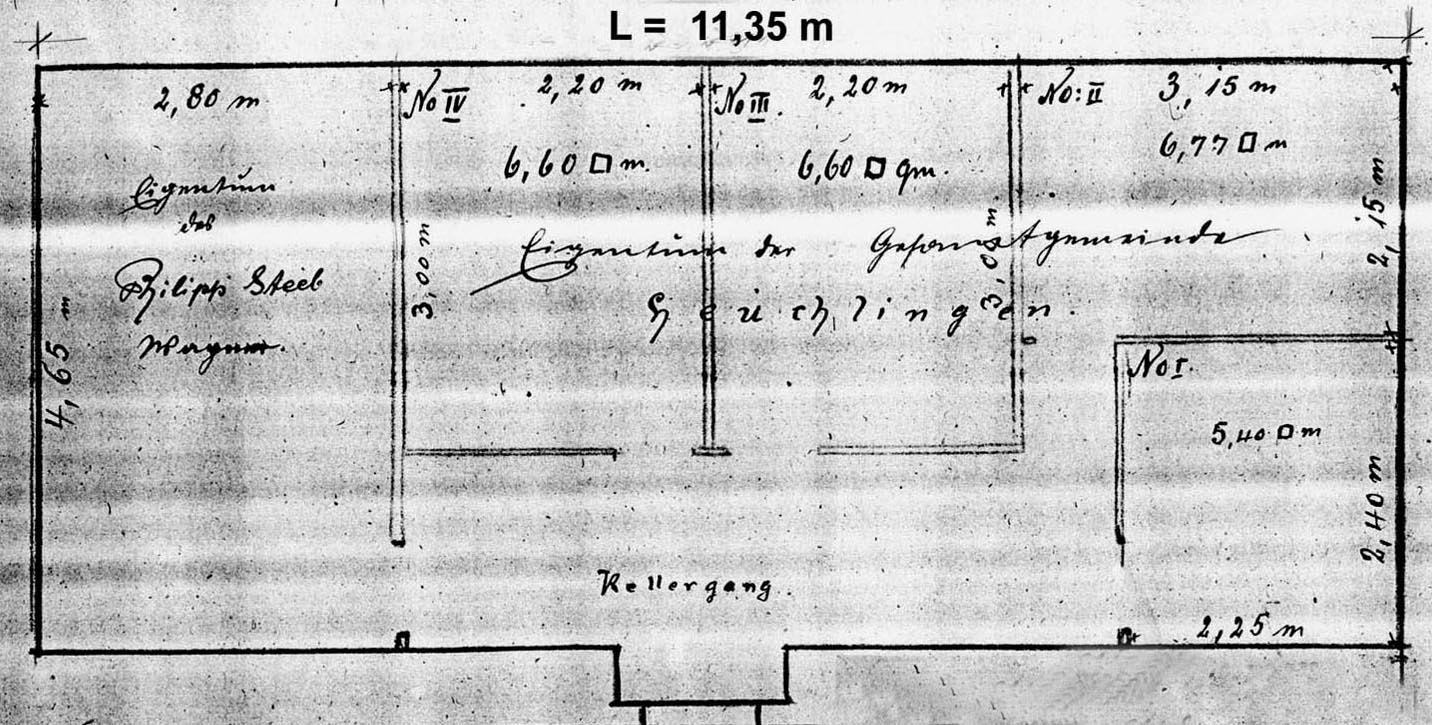 L = 11,35 m
2,80 m
No IV
2,20 m
No III.
2,20 m
No: II
3,15 m
6,60 □ m.
6,60 □ qm.
6,77 □ m
Eigentum
des
Philipp Steeb
Wagner.
3,00 m
3,00 m
2,15 m
Eigentum der Gesamtgemeinde
Heuchlingen.
4,65 m
No I.
5,40 □ m
2,40 m
Kellergang.
2,25 m